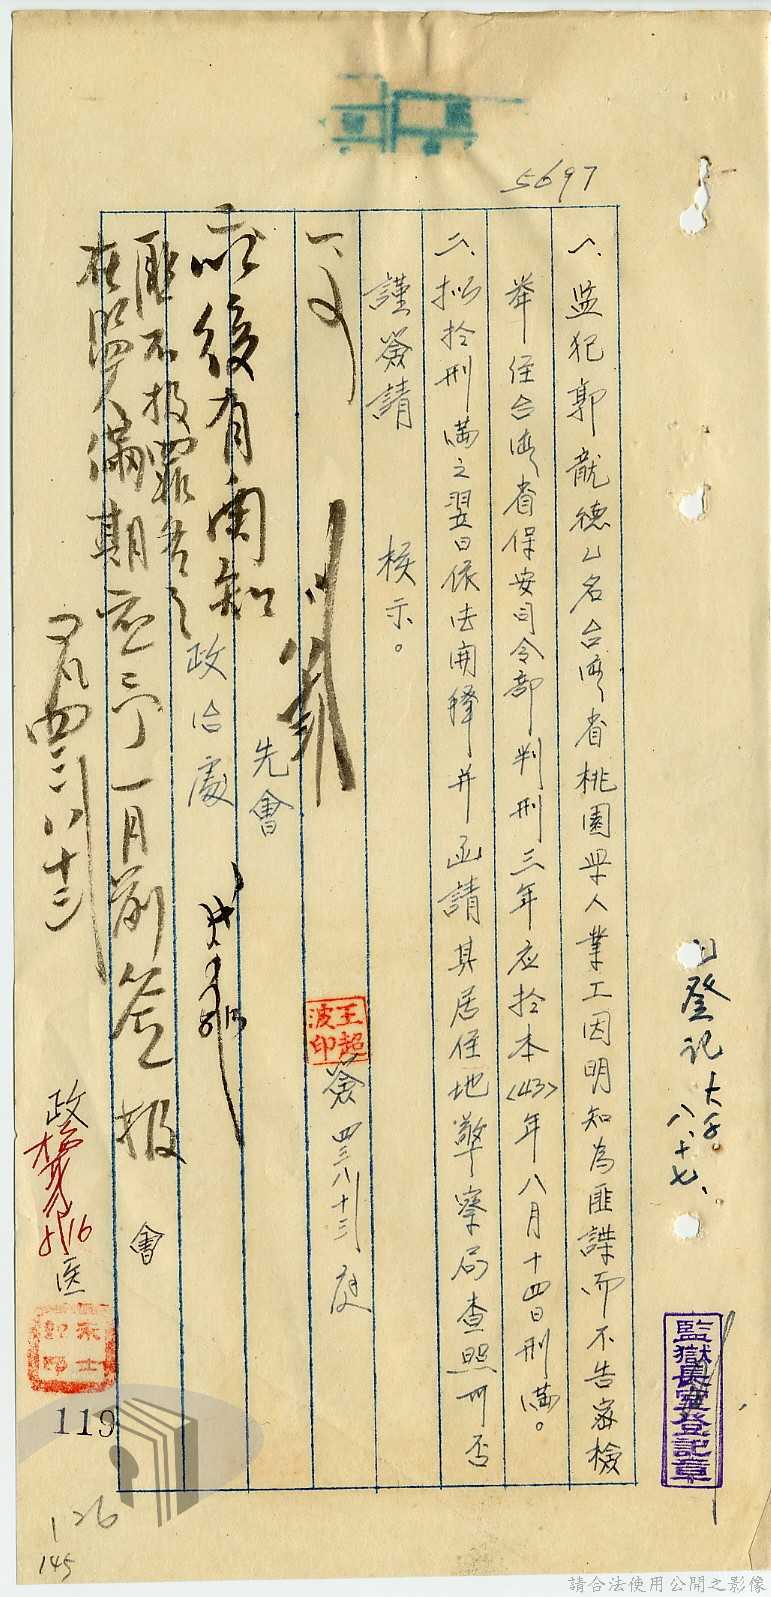 5697
一、監犯郭龍德乙名台湾省桃園縣人業工因明知為匪諜而不告密檢
舉經台湾省保安司令部判刑三年應於本<43>年八月十四日刑滿。
二、拟於刑滿之翌日依法開釋并函請其居住地警察局查照可否
謹簽請
核示。
王超波印
簽 四三八十三
先會
政治處
嗣後有関知
匪不报罪者之
在監人倘期应予一月前簽报
四三八十三
會
政
8/16
医
登記
八、十七、
監獄長室登記章
119
126
145
請合法使用公開之影像